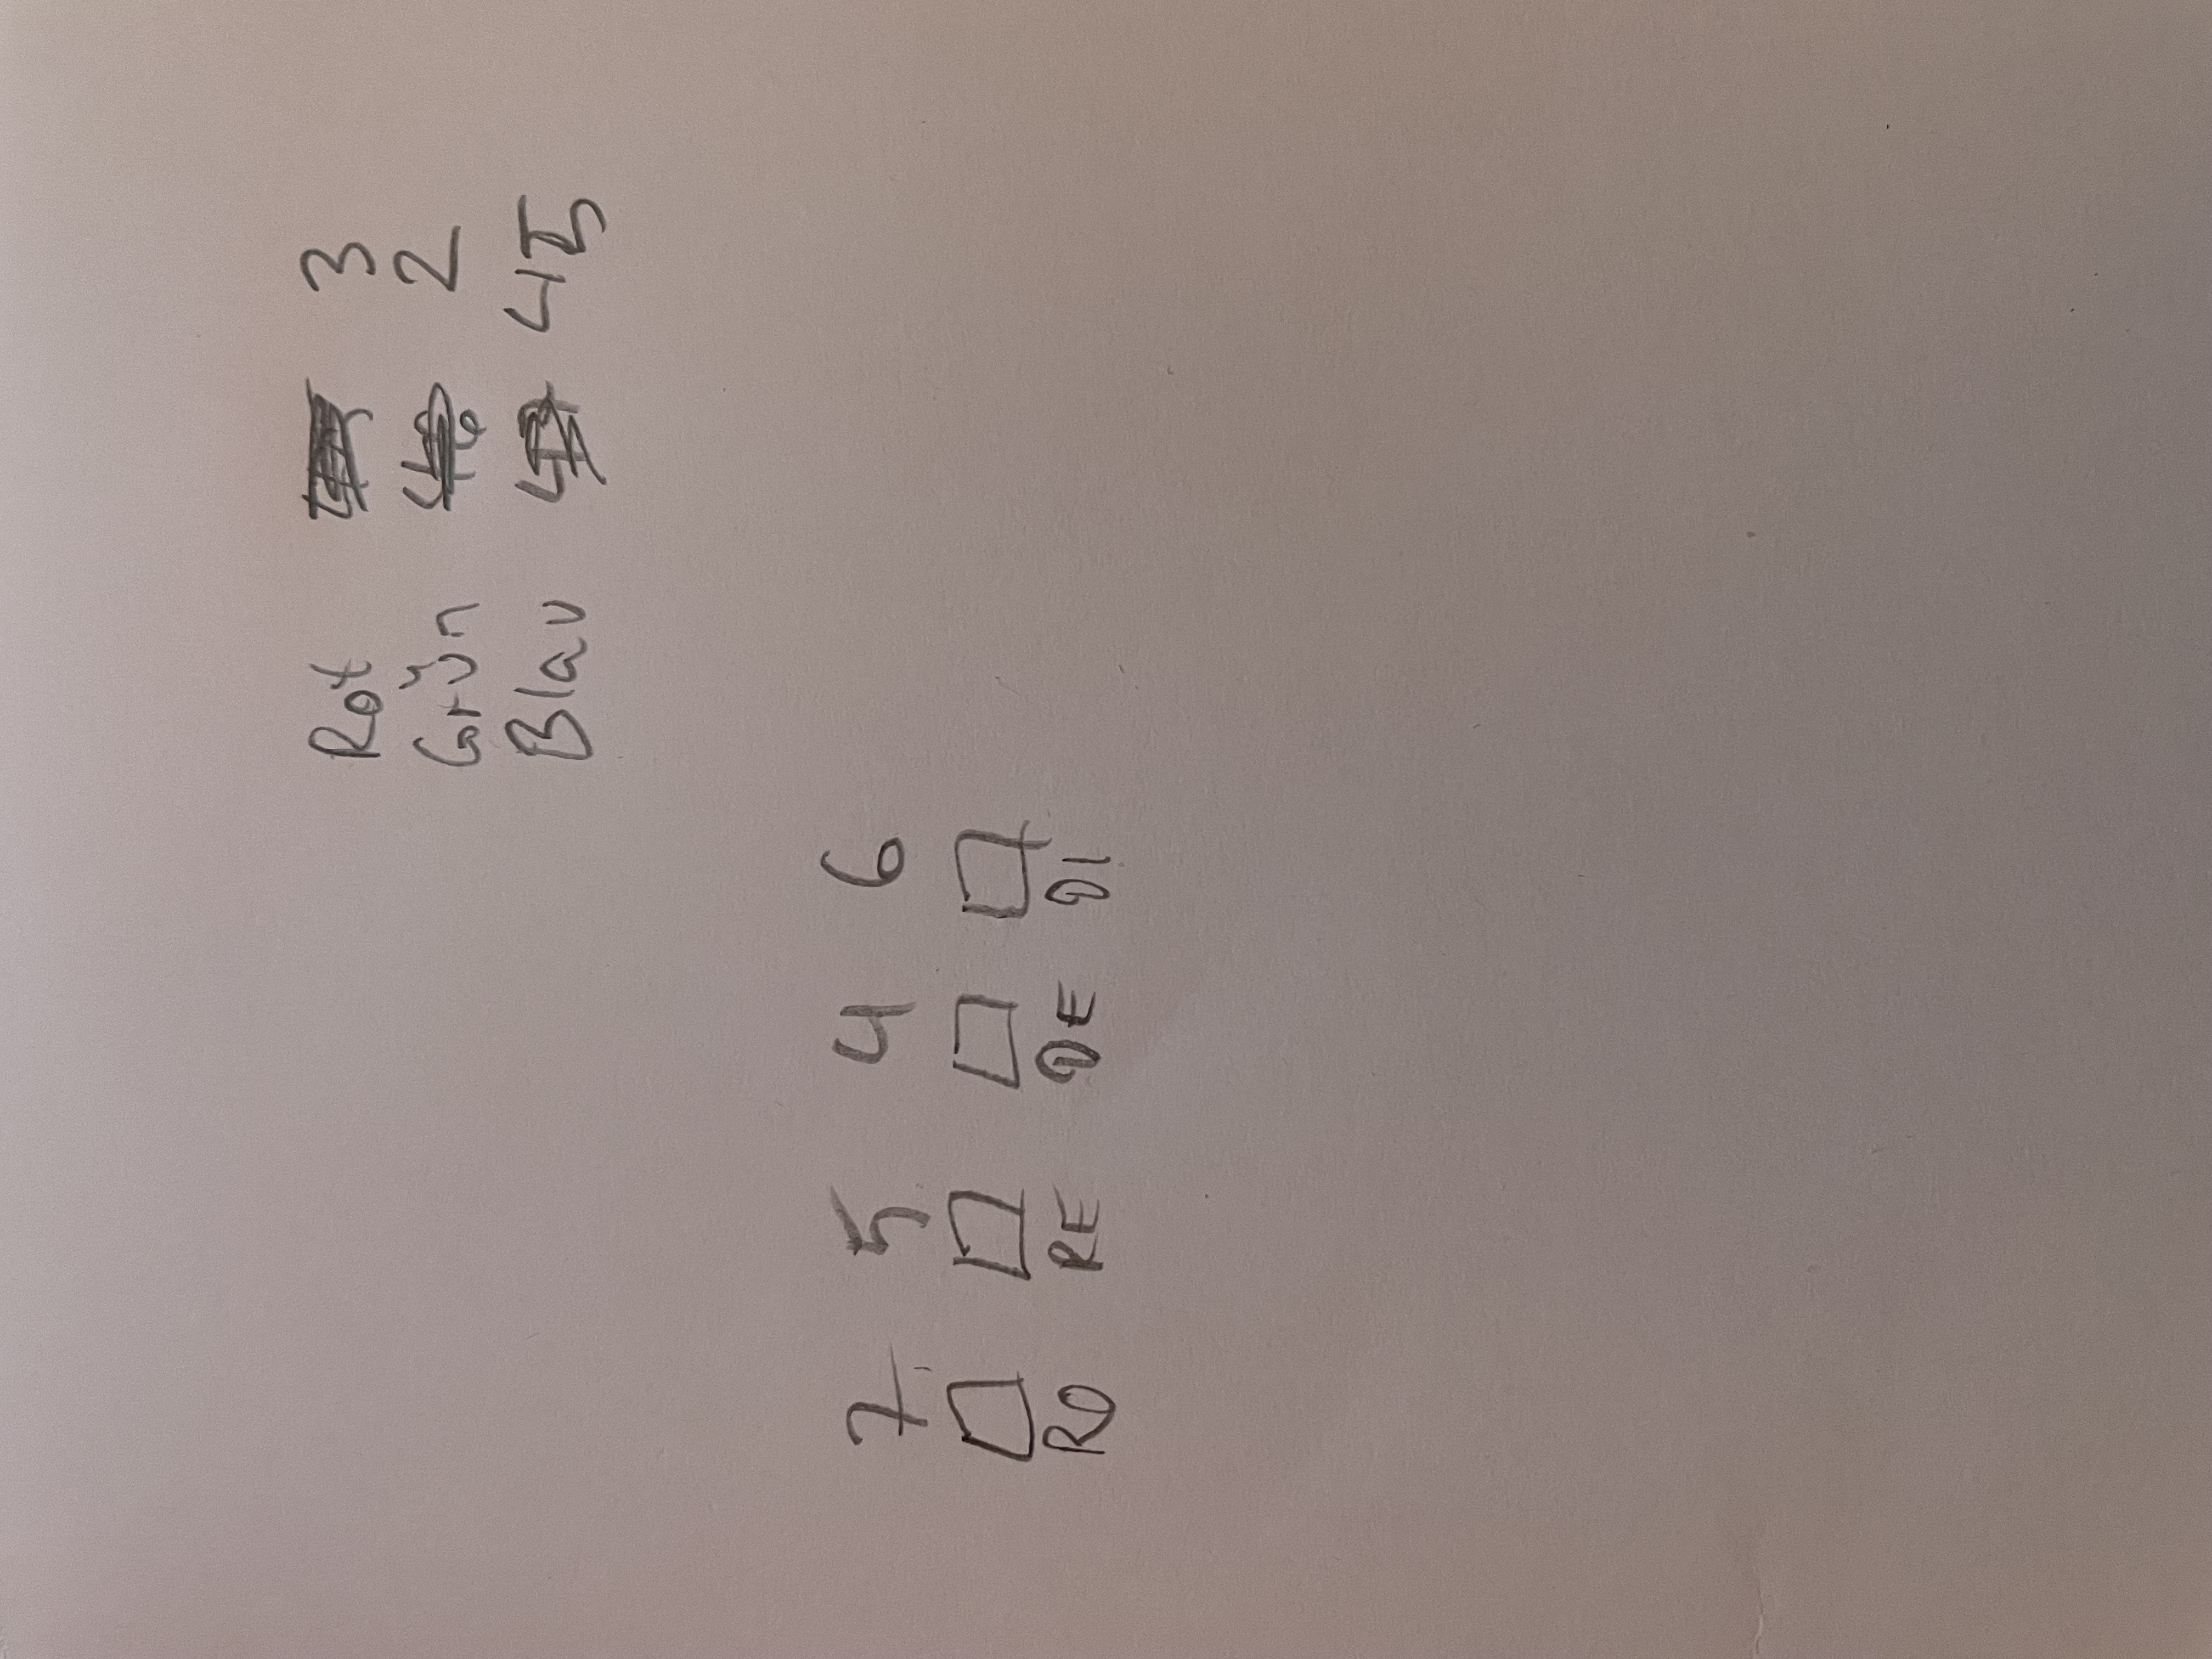 Rot 3
Grün 2
Blau 45
7 5 4 6
RO RE DE DI